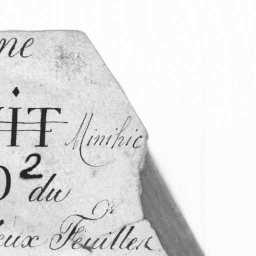 ne
IT Minihic
2 du
eux Feuilles